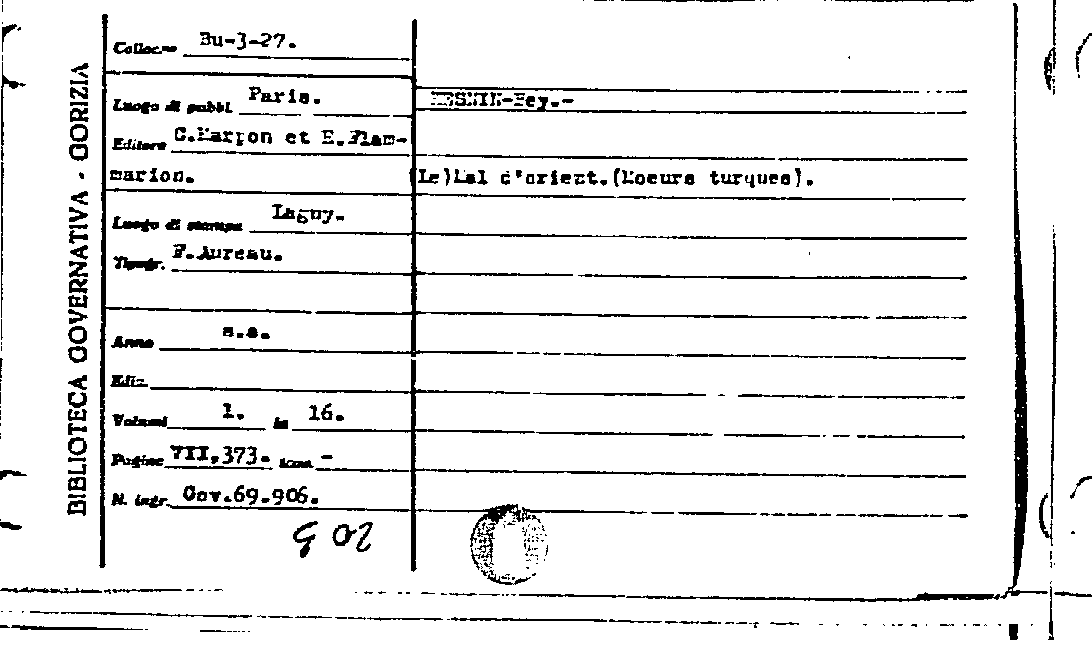 BIBLIOTECA GOVERNATIVA - GORIZIA
Colloc.ne Bu-3-27.
Luogo di pubbl. Paris.
KESNIN-Bey.-
Editore C.Marpon et E.Flam-
marion.
(Le)Mal d'orient.(Moeurs turques).
Luogo di stampa Lagny.
Tipogr. F.Aureau.
Anno s.a.
Ediz.
Volumi 1. in 16.
Pagine VII,373. tav. -
N. ingr. Gov.69.906.